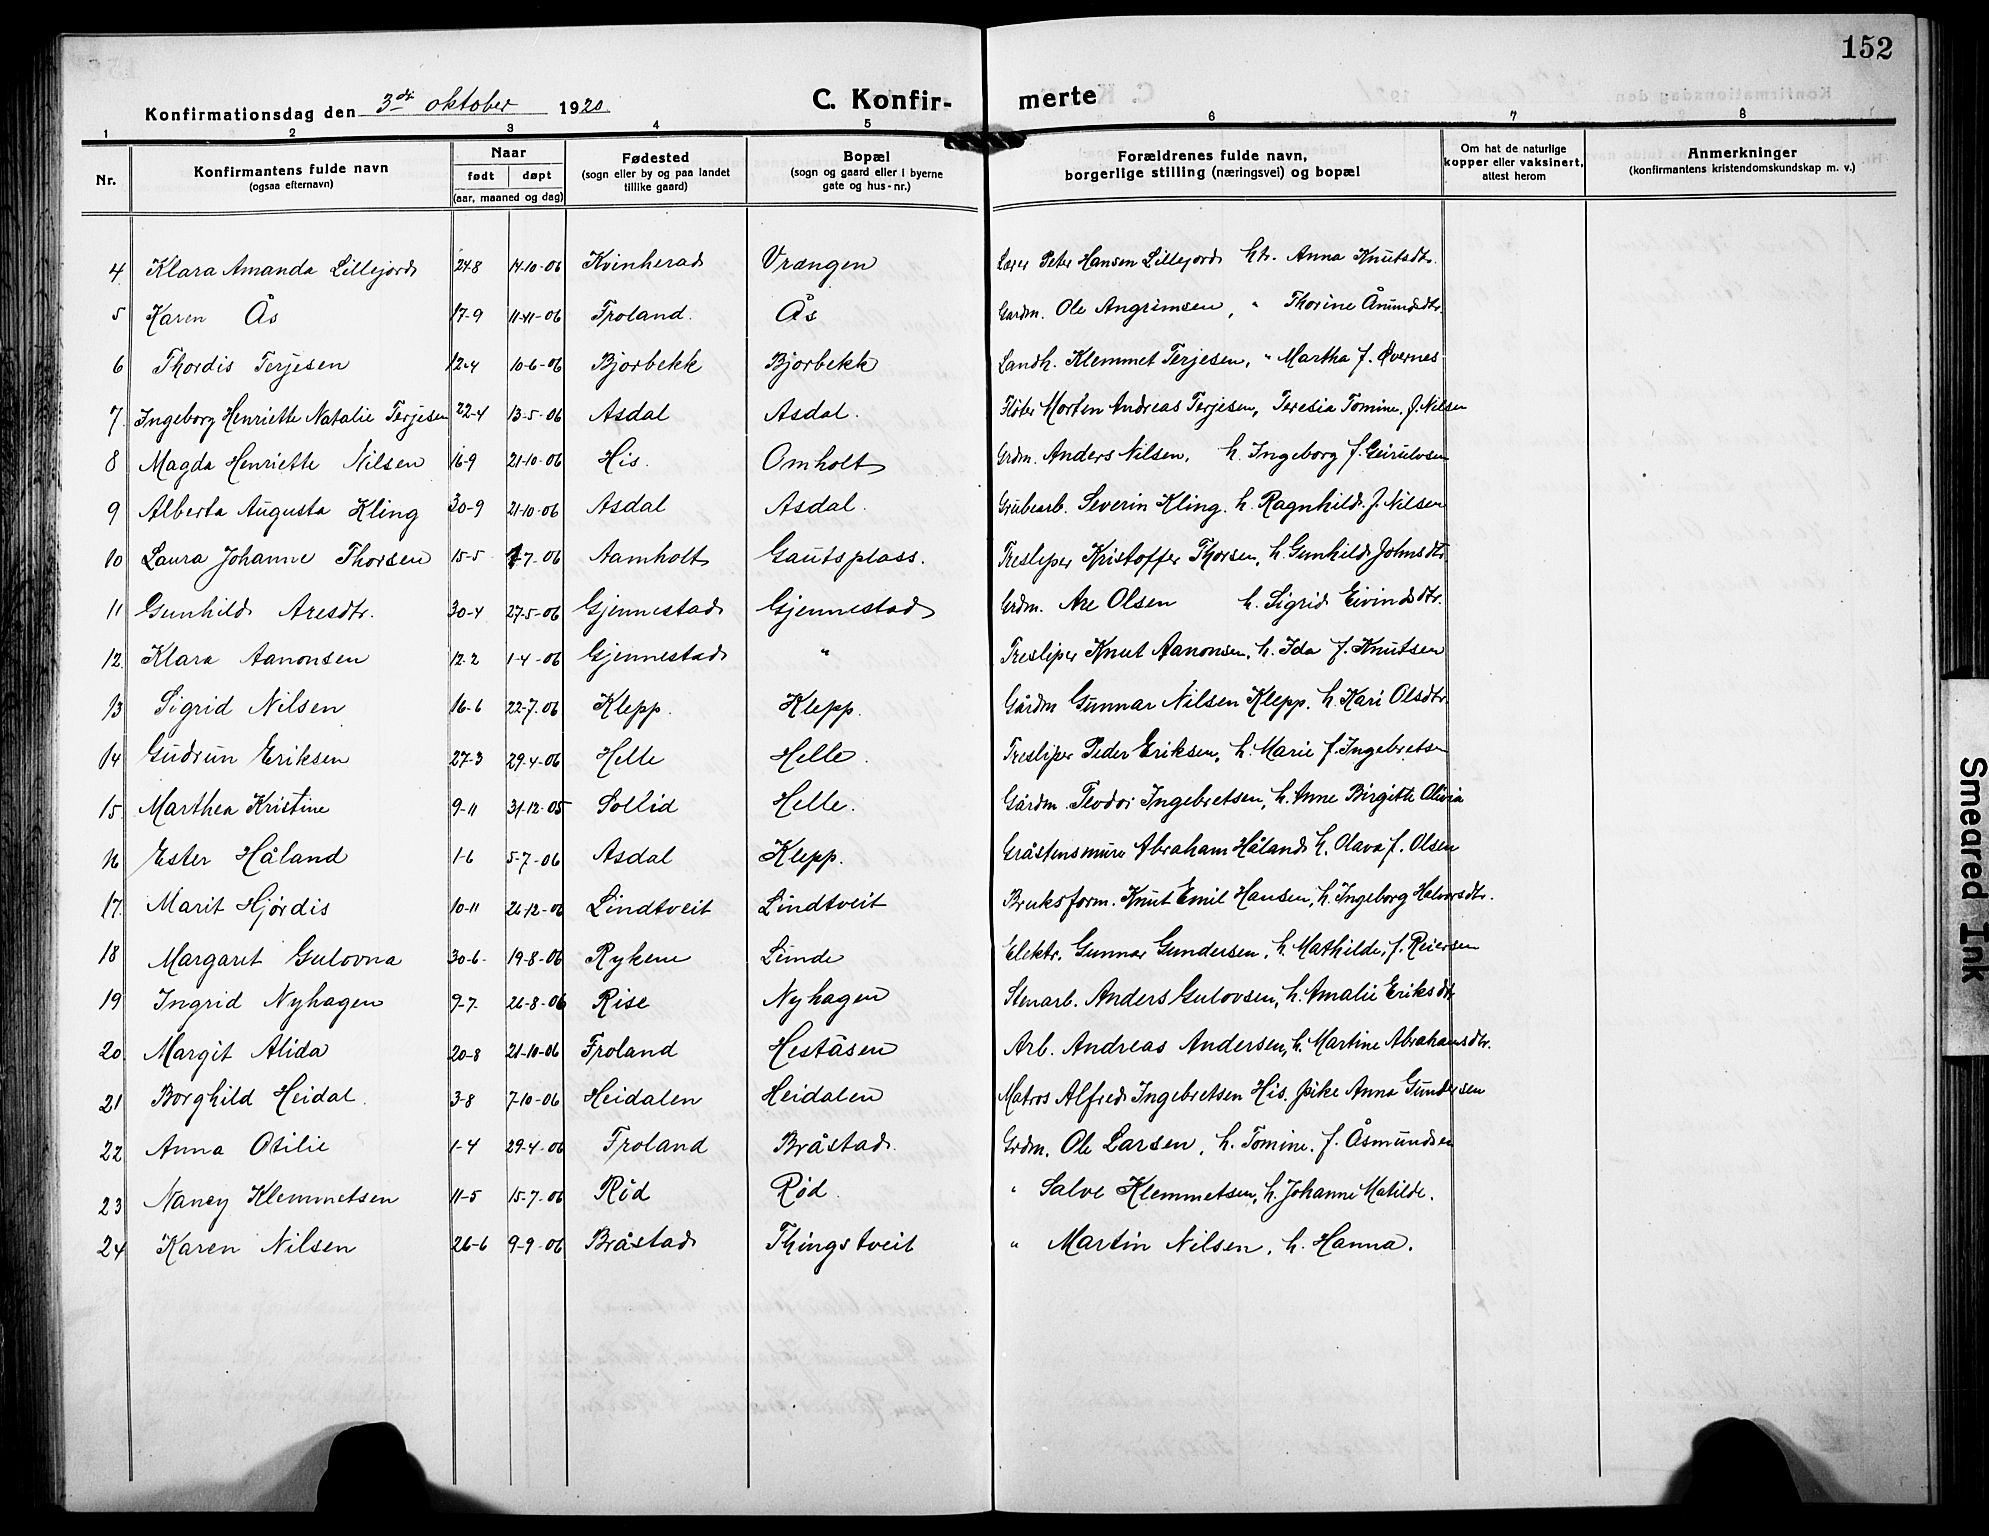 152
Konfirmationsdag den 3die oktober 1920 C. Konfir- merte
1 2 3 4 5 6 7 8
Nr. Konfirmantens fulde navn (ogsaa efternavn) Naar født døpt (aar, maaned og dag) Fødested (sogn eller by og paa landet tillike gaard) Bopæl (sogn og gaard eller i byerne gate og hus-nr.) Forældrenes fulde navn, borgerlige stilling (næringsvei) og bopæl Om hat de naturlige kopper eller vaksinert, attest herom Anmerkninger (konfirmantens kristendomskundskap m. v.)
4 Klara Amanda Lillejord 24-8 14-10-06 Kvinherad Vrængen Lærer Peter Hansen Lillejord htr. Anna Knutsdtr.
5 Karen Ås 17-9 11-11-06 Froland. Ås Gardm. Ole Angrimsen, " Thorine Ånundsdtr.
6 Thordis Terjesen 12-4 10-6-06 Bjorbekk Bjorbekk Landh. Klemmet Terjesen, " Martha f. Øvernes
7. Ingeborg Henriette Natalie Terjesen 22-4 13-5-06 Asdal Asdal. Fløter Morten Andreas Terjesen, Teresia Tomine, f. Nilsen
8 Magda Henriette Nilsen 16-9 21-10-06 His. Omholt Grdm. Anders Nilsen, h. Ingeborg f. Geirulvsen
9 Alberta Augusta Kling 30-9 21-10-06 Asdal Asdal. Grubearb. Severin Kling. h. Ragnhild f. Nilsen
10 Laura Johanne Thorsen 15-5 1-7-06 Aamholt Gautsplass. Tresliper Kristoffer Thorsen, h. Gunhild Johnsdtr.
11 Gunhild Aresdtr. 30-4 27-5-06 Gjennestad Gjennestad Grdm. Are Olsen h. Sigrid Eivindsdtr.
12. Klara Aanonsen 12-2 1-4-06 Gjennestad " Tresliper Knut Aanonsen, h. Ida f. Knutsen
13 Sigrid Nilsen 16-6 22-7-06 Klepp. Klepp. Gårdm Gunnar Nilsen Klepp. h. Kari Olsdtr.
14 Gudrun Eriksen 27-3 29-4-06 Helle Helle. Tresliper Peder Eriksen, h. Marie f. Ingebretsen
15. Marthea Kristine 9-11 31-12-05 Sollid Helle. Gårdm. Teodor Ingebretsen, h. Anne Birgitte Olivia
16 Ester Håland 1-6 5-7-06 Asdal Klepp. Gråstensmure Abraham Håland h. Olava f. Olsen
17. Marit Hjørdis 10-11 26-12-06 Lindtveit Lindtveit Bruksform. Knut Emil Hansen, h. Ingeborg Halvorsdtr.
18 Margaret Gulovna 30-6- 19-8-06 Rykene Lunde Elektr. Gunnar Gundersen, h. Mathilde, f. Reiersen
19 Ingrid Nyhagen 9-7. 26-8-06 Rise Nyhagen Stenarb. Anders Gulovsen, h. Amalie Eriksdtr.
20. Margit Alida 20-8 21-10-06 Froland Heståsen Arb. Andreas Andersen, h. Martine Abrahamsdtr.
21 Borghild Heidal. 3-8 7-10-06 Heidalen Heidalen Matros Alfred Ingebretsen His. pike Anna Gundersen
22 Anna Otilie 1-4 29-4-06 Froland Bråstad. Grdm. Ole Larsen, h. Tomine. f. Åsmundsen
23 Nancy Klemmetsen 11-5 15-7-06 Rød Rød. " Salve Klemmetsen, h. Johanne Matilde.
24 Karen Nilsen 26-6 9-9-06 Bråstad Thingstveit " Martin Nilsen, h. Hanna.
Smeared Ink